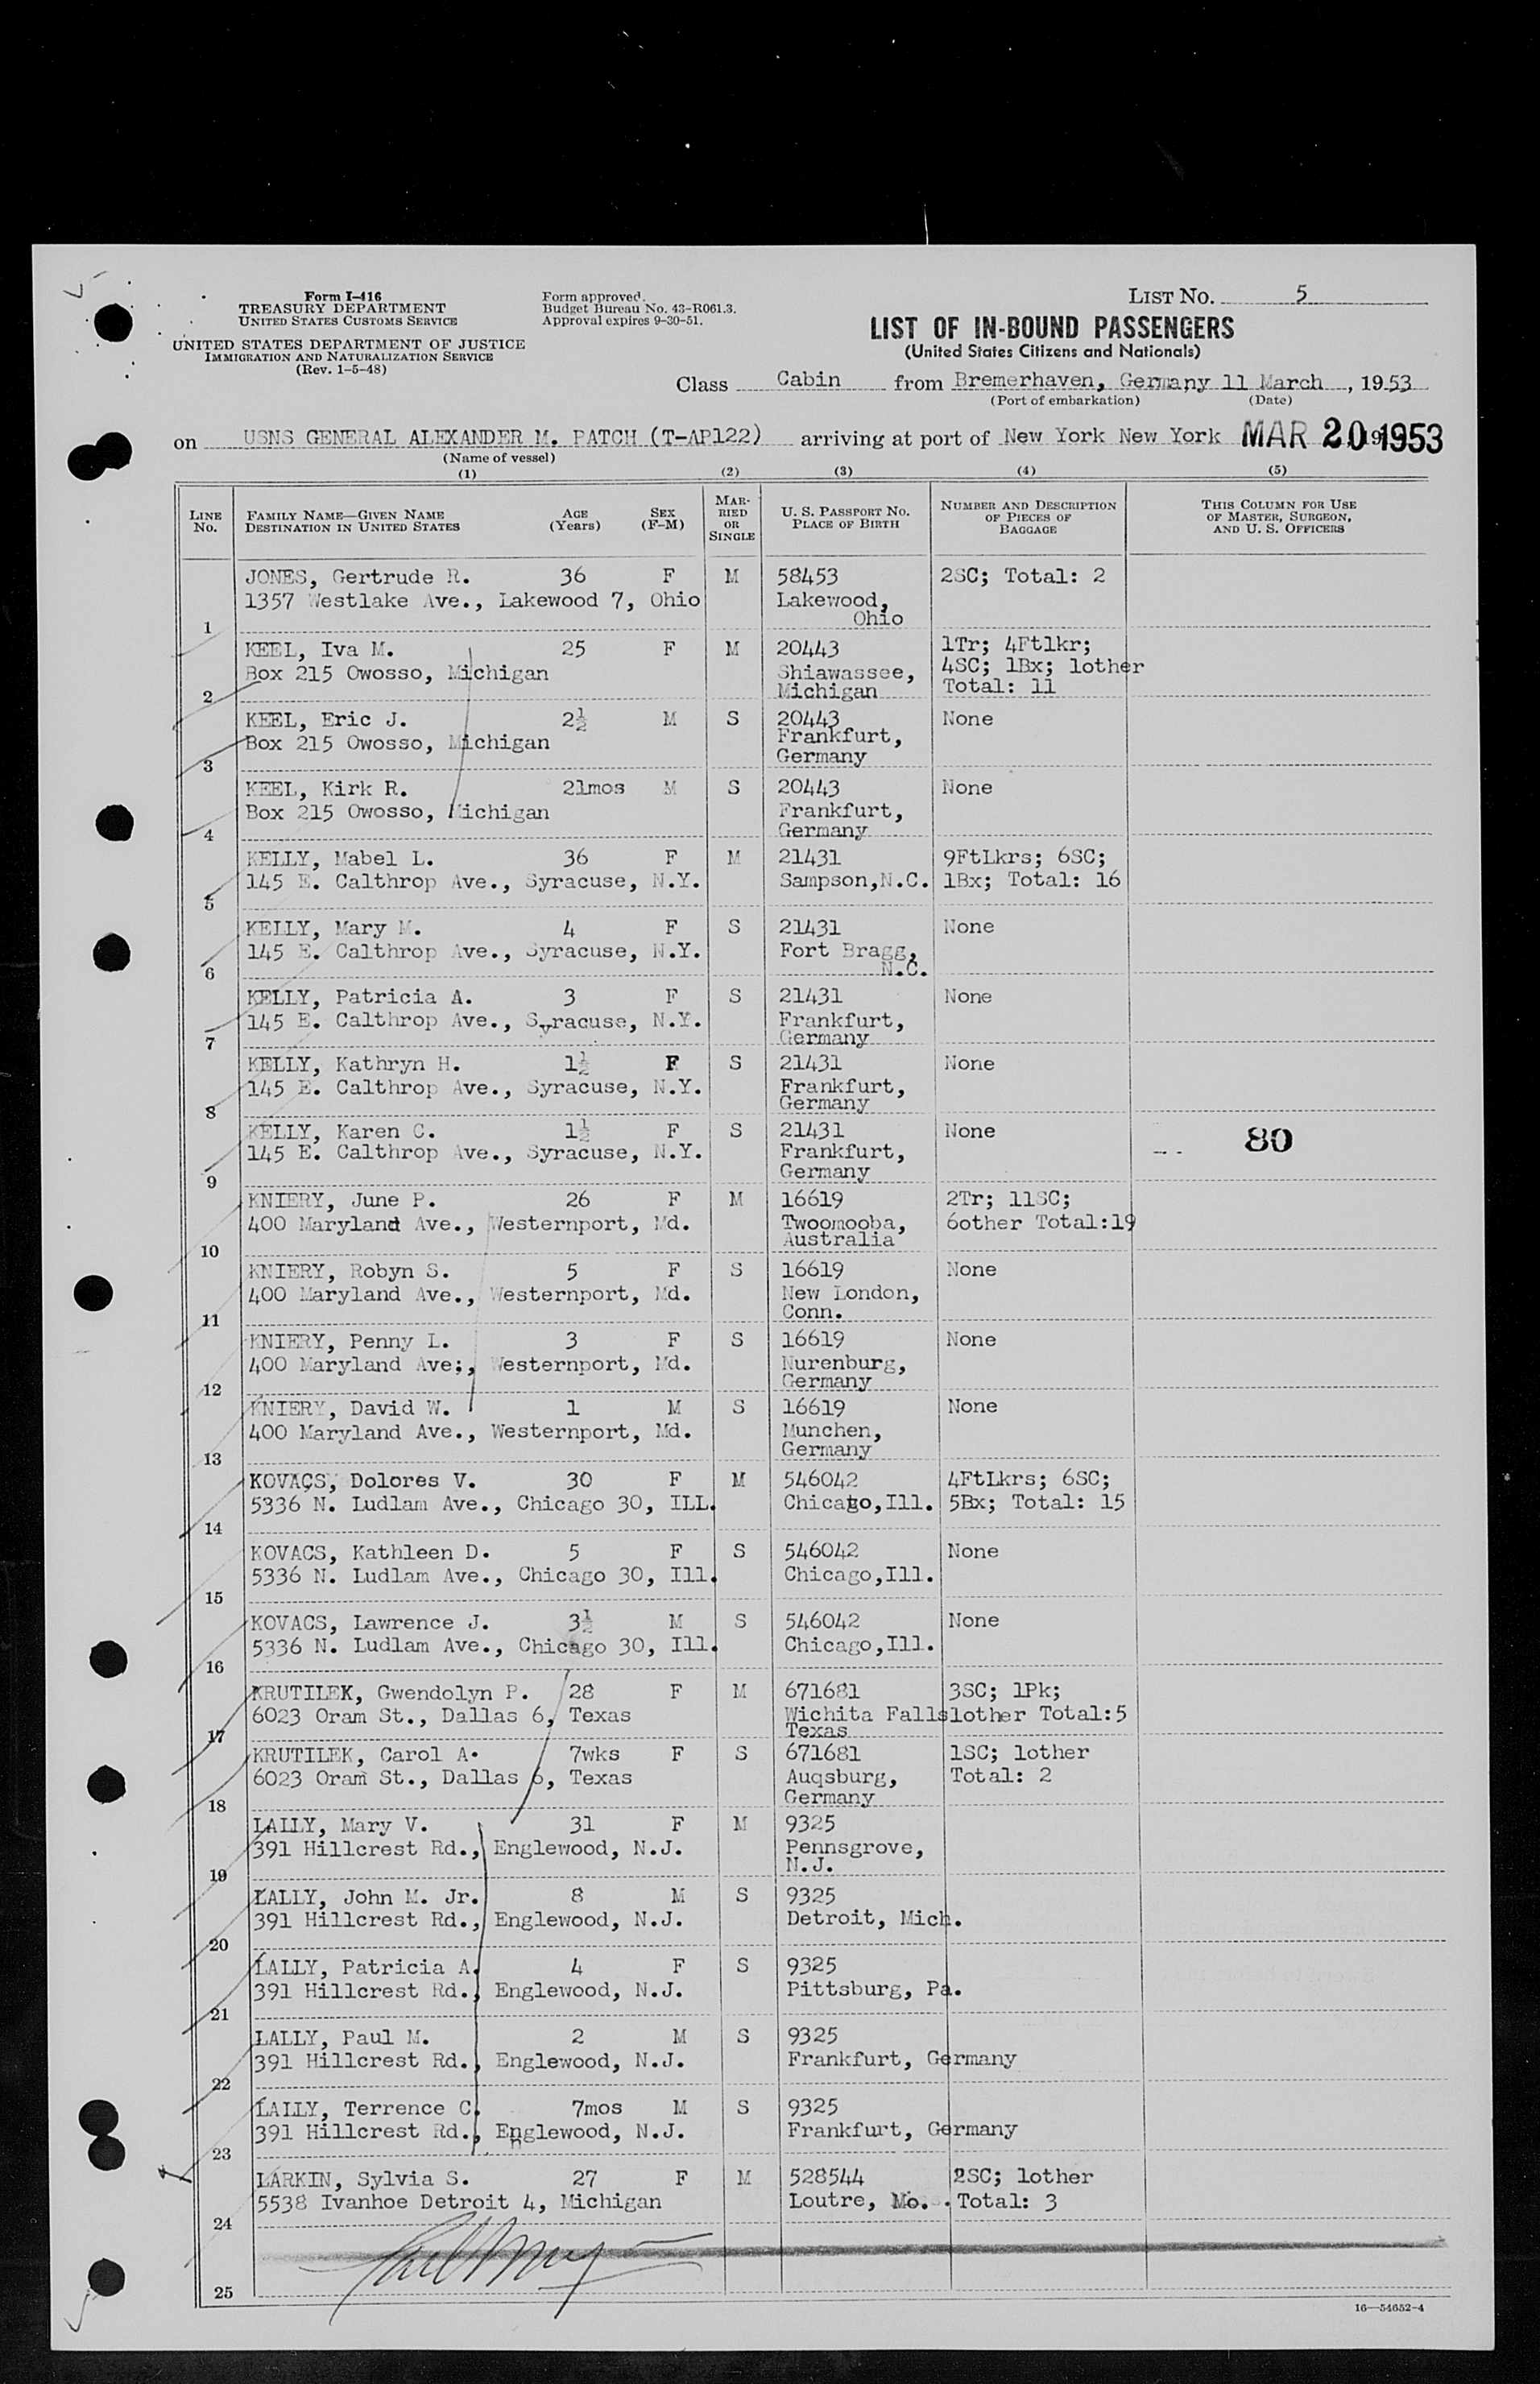 Form I-416
TREASURY DEPARTMENT
UNITED STATES CUSTOMS SERVICE
UNITED STATES DEPARTMENT OF JUSTICE
IMMIGRATION AND NATURALIZATION SERVICE
(Rev. 1-5-48)
Form approved.
Budget Bureau No. 43-R061.3.
Approval expires 9-30-51.
LIST NO. 5
LIST OF IN-BOUND PASSENGERS
(United States Citizens and Nationals)
Class Cabin from Bremerhaven, Germany 11 March, 1953
(Port of embarkation) (Date)
on USNS GENERAL ALEXANDER M. PATCH (T-AP122) arriving at port of New York New York MAR 20 1953
(Name of vessel)
(1) (2) (3) (4) (5)
LINE NO. FAMILY NAME—GIVEN NAME DESTINATION IN UNITED STATES AGE (Years) SEX (F-M) MARRIED OR SINGLE U. S. PASSPORT NO. PLACE OF BIRTH NUMBER AND DESCRIPTION OF PIECES OF BAGGAGE THIS COLUMN FOR USE OF MASTER, SURGEON, AND U. S. OFFICERS
JONES, Gertrude R. 36 F M 58453 2SC; Total: 2
1357 Westlake Ave., Lakewood 7, Ohio Lakewood,
1 Ohio
KEEL, Iva M. 25 F M 20443 1Tr; 4Ftlkr;
Box 215 Owosso, Michigan Shiawassee, 4SC; 1Bx; 1other
2 Michigan Total: 11
KEEL, Eric J. 2½ M S 20443 None
Box 215 Owosso, Michigan Frankfurt,
3 Germany
KEEL, Kirk R. 21mos M S 20443 None
Box 215 Owosso, Michigan Frankfurt,
4 Germany
KELLY, Mabel L. 36 F M 21431 9FtLkrs; 6SC;
145 E. Calthrop Ave., Syracuse, N.Y. Sampson,N.C. 1Bx; Total: 16
5
KELLY, Mary M. 4 F S 21431 None
145 E. Calthrop Ave., Syracuse, N.Y. Fort Bragg,
6 N.C.
KELLY, Patricia A. 3 F S 21431 None
145 E. Calthrop Ave., Syracuse, N.Y. Frankfurt,
7 Germany
KELLY, Kathryn H. 1½ F S 21431 None
145 E. Calthrop Ave., Syracuse, N.Y. Frankfurt,
8 Germany
KELLY, Karen C. 1½ F S 21431 None 80
145 E. Calthrop Ave., Syracuse, N.Y. Frankfurt,
9 Germany
KNIERY, June P. 26 F M 16619 2Tr; 11SC;
400 Maryland Ave., Westernport, Md. Twoomooba, 6other Total:19
10 Australia
KNIERY, Robyn S. 5 F S 16619 None
400 Maryland Ave., Westernport, Md. New London,
11 Conn.
KNIERY, Penny L. 3 F S 16619 None
400 Maryland Ave;, Westernport, Md. Nurenburg,
12 Germany
KNIERY, David W. 1 M S 16619 None
400 Maryland Ave., Westernport, Md. Munchen,
13 Germany
KOVACS, Dolores V. 30 F M 546042 4FtLkrs; 6SC;
5336 N. Ludlam Ave., Chicago 30, ILL. Chicago,Ill. 5Bx; Total: 15
14
KOVACS, Kathleen D. 5 F S 546042 None
5336 N. Ludlam Ave., Chicago 30, Ill. Chicago,Ill.
15
KOVACS, Lawrence J. 3½ M S 546042 None
5336 N. Ludlam Ave., Chicago 30, Ill. Chicago,Ill.
16
KRUTILEK, Gwendolyn P. 28 F M 671681 3SC; 1Pk;
6023 Oram St., Dallas 6, Texas Wichita Falls 1other Total:5
17 Texas
KRUTILEK, Carol A. 7wks F S 671681 1SC; 1other
6023 Oram St., Dallas 6, Texas Auqsburg, Total: 2
18 Germany
LALLY, Mary V. 31 F M 9325
391 Hillcrest Rd., Englewood, N.J. Pennsgrove,
19 N.J.
LALLY, John M. Jr. 8 M S 9325
391 Hillcrest Rd., Englewood, N.J. Detroit, Mich.
20
LALLY, Patricia A. 4 F S 9325
391 Hillcrest Rd., Englewood, N.J. Pittsburg, Pa.
21
LALLY, Paul M. 2 M S 9325
391 Hillcrest Rd., Englewood, N.J. Frankfurt, Germany
22
LALLY, Terrence C. 7mos M S 9325
391 Hillcrest Rd., Englewood, N.J. Frankfurt, Germany
23
LARKIN, Sylvia S. 27 F M 528544 2SC; 1other
5538 Ivanhoe Detroit 4, Michigan Loutre, Mo. Total: 3
24
25
16—54652-4